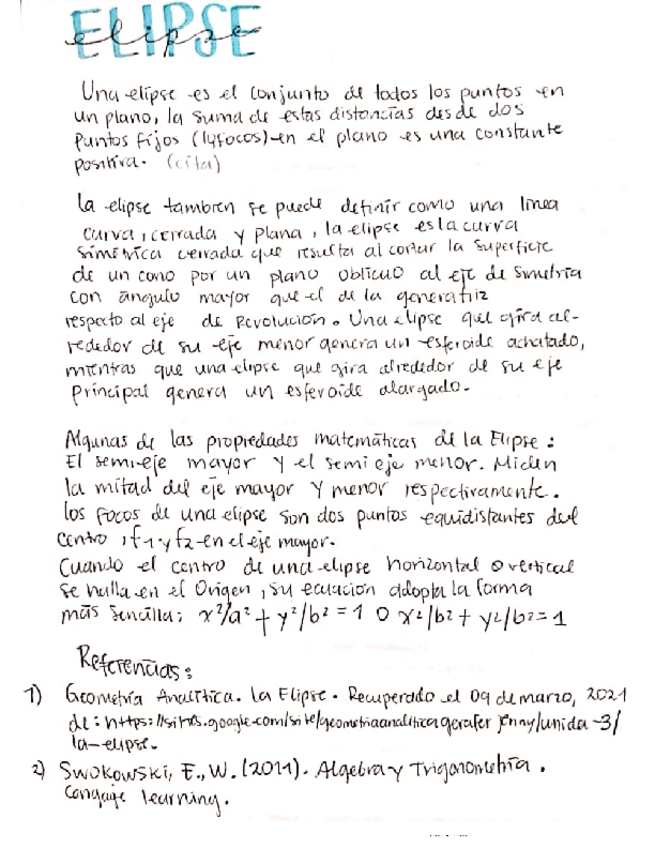 ELIPSE
elipse
Una elipse es el conjunto de todos los puntos en
un plano, la suma de estas distancias desde dos
puntos fijos (lyfocos) en el plano es una constante
positiva. (cita)
La elipse tambien se puede definir como una linea
curva, cerrada y plana, la elipse es la curva
simétrica cerrada que resulta al cortar la superficie
de un cono por un plano oblicuo al eje de simetría
con ángulo mayor que el de la generatriz
respecto al eje de Revolución. Una elipse que gira al-
rededor de su eje menor genera un esferoide achatado,
mientras que una elipse que gira alrededor de su eje
principal genera un esferoide alargado.
Algunas de las propiedades matemáticas de la Elipse:
El semi-eje mayor y el semi eje menor. Miden
la mitad del eje mayor y menor respectivamente.
los focos de una elipse son dos puntos equidistantes del
centro, f1 y f2 en el eje mayor.
Cuando el centro de una elipse horizontal o vertical
se halla en el Origen, su ecuación adopta la forma
más sencilla: x²/a² + y²/b² = 1 O x²/b² + y²/b² = 1
Referencias:
1) Geometría Analítica. La Elipse. Recuperado el 09 de marzo, 2021
de: https://sites.google.com/site/geometriaanaliticagerafer jenny/unida-3/
la-elipse.
2) Swokowski, E., W. (2011). Algebra y Trigonometría.
Cengage learning.